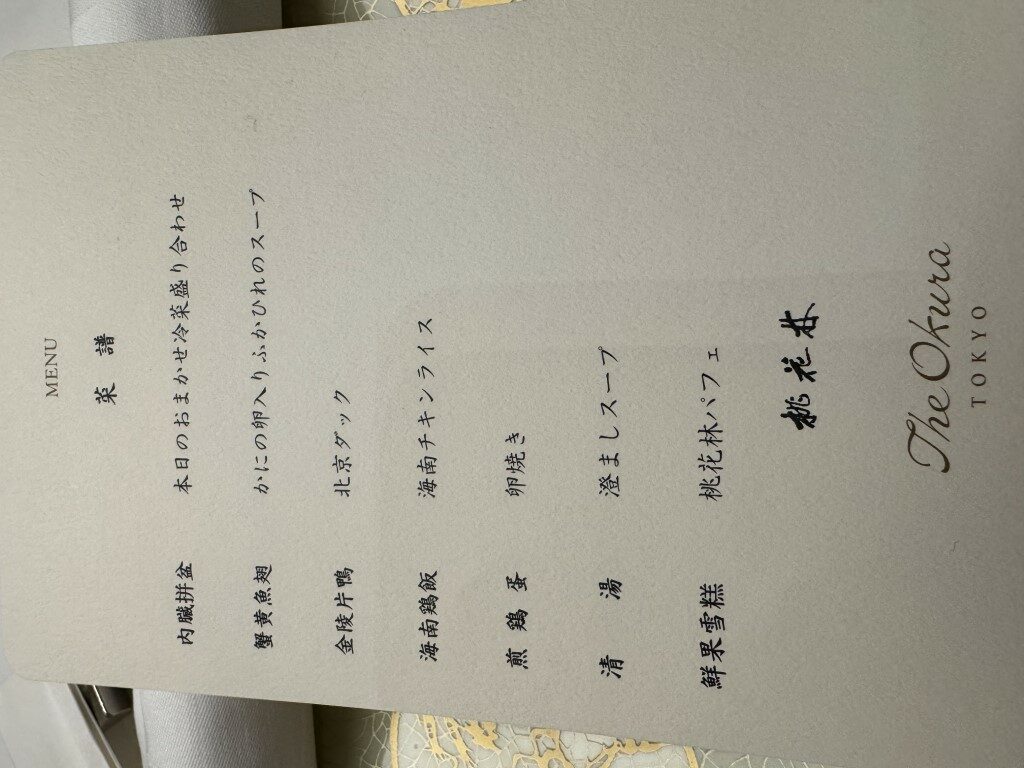 MENU
菜 譜
内臓拼盆 本日のおまかせ冷菜盛り合わせ
蟹黄魚翅 かにの卵入りふかひれのスープ
金陵片鴨 北京ダック
海南鶏飯 海南チキンライス
煎鶏蛋 卵焼き
清 湯 澄ましスープ
鮮果雪糕 桃花林パフェ
桃花林
The Okura
TOKYO